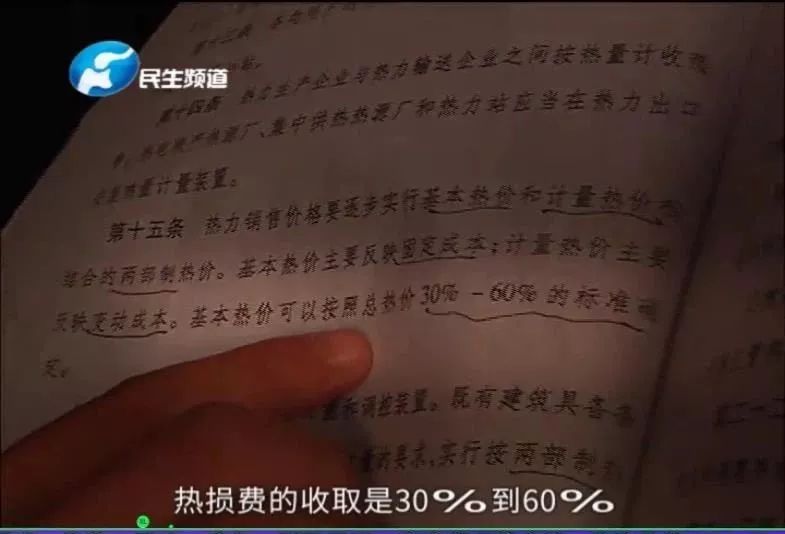 民生频道
第十四条 热力生产企业与热力输送企业之间按热量计收
热源厂、集中供热热源厂和热力站应当在热力出口
热量计量装置。
第十五条 热力销售价格要逐步实行基本热价和计量热价
结合的两部制热价。基本热价主要反映固定成本;计量热价主要
反映变动成本。基本热价可以按照总热价30%-60%的标准
定。
和调控装置。既有建筑具备
量的要求,实行按两部制
热损费的收取是30%到60%